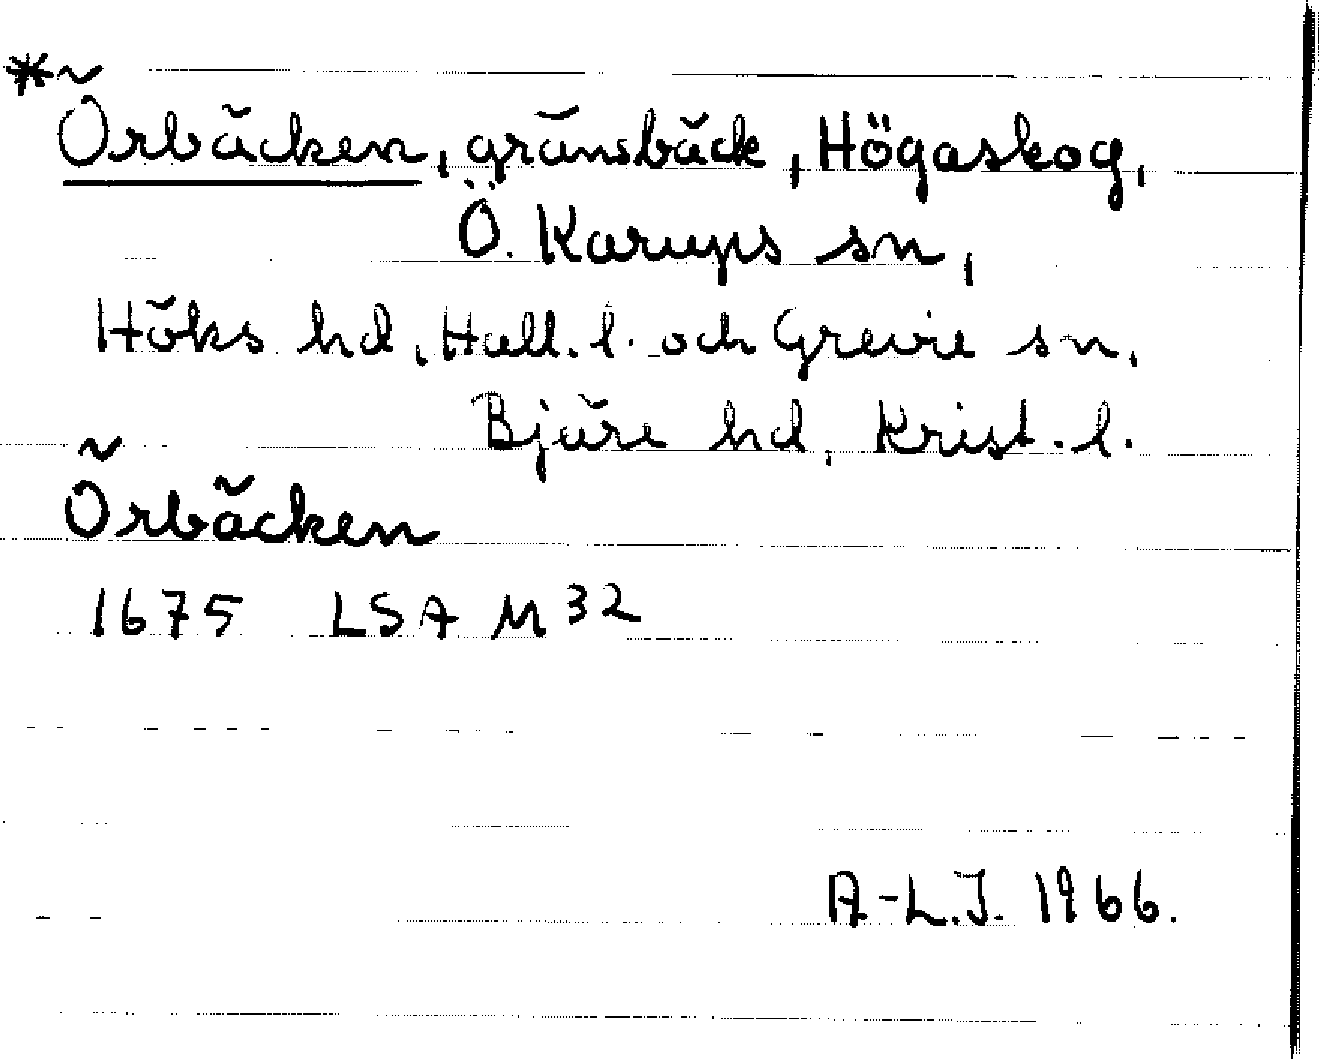 *Örbäcken, gränsbäck, Högaskog,
Ö. Karups sn,
Höks hd, Hall. l. och Grevie sn,
Bjäre hd, Krist. l.
Örbäcken
1675 LSA M 32
A-L.J. 1966.